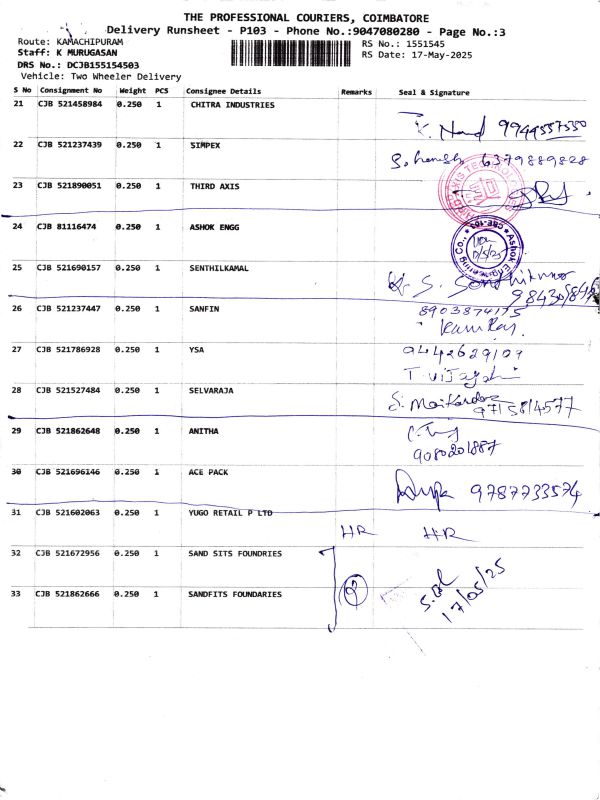 THE PROFESSIONAL COURIERS, COIMBATORE
Delivery Runsheet - P103 - Phone No.:9047080280 - Page No.:3
Route: KAMACHIPURAM
RS No.: 1551545
Staff: K MURUGASAN
RS Date: 17-May-2025
DRS No.: DCJB155154503
Vehicle: Two Wheeler Delivery
S No Consignment No Weight PCS Consignee Details Remarks Seal & Signature
21 CJB 521458984 0.250 1 CHITRA INDUSTRIES
22 CJB 521237439 0.250 1 SIMPEX
6379889828
23 CJB 521890051 0.250 1 THIRD AXIS
24 CJB 81116474 0.250 1 ASHOK ENGG
Ashok Engineering Co.,
25 CJB 521690157 0.250 1 SENTHILKAMAL
26 CJB 521237447 0.250 1 SANFIN
8903874175
27 CJB 521786928 0.250 1 YSA
9442629109
28 CJB 521527484 0.250 1 SELVARAJA
9715814577
29 CJB 521862648 0.250 1 ANITHA
9080201887
30 CJB 521696146 0.250 1 ACE PACK
9787733574
31 CJB 521602063 0.250 1 YUGO RETAIL P LTD
HR HR
32 CJB 521672956 0.250 1 SAND SITS FOUNDRIES
33 CJB 521862666 0.250 1 SANDFITS FOUNDARIES
2
17/05/25